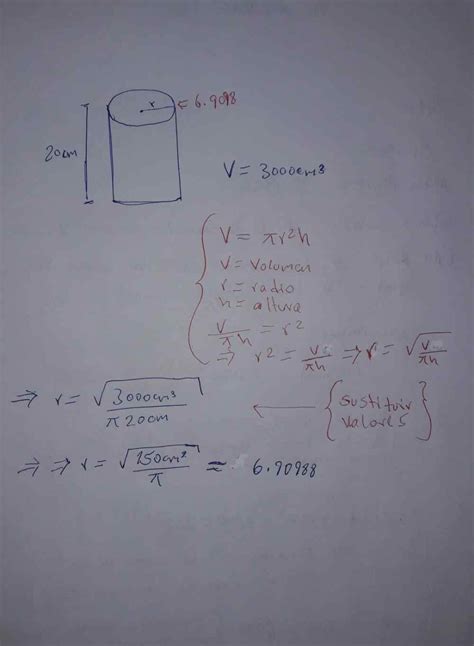 r ← 6.9098
20cm
V = 3000cm³
V = πr²h
V = Volumen
r = radio
h = altura
V/πh = r²
⇒ r² = V/πh ⇒ r = √(V/πh)
⇒ r = √(3000cm³/π20cm) ← {Sustituir
valores}
⇒ ⇒ r = √(150cm²/π) = 6.90988